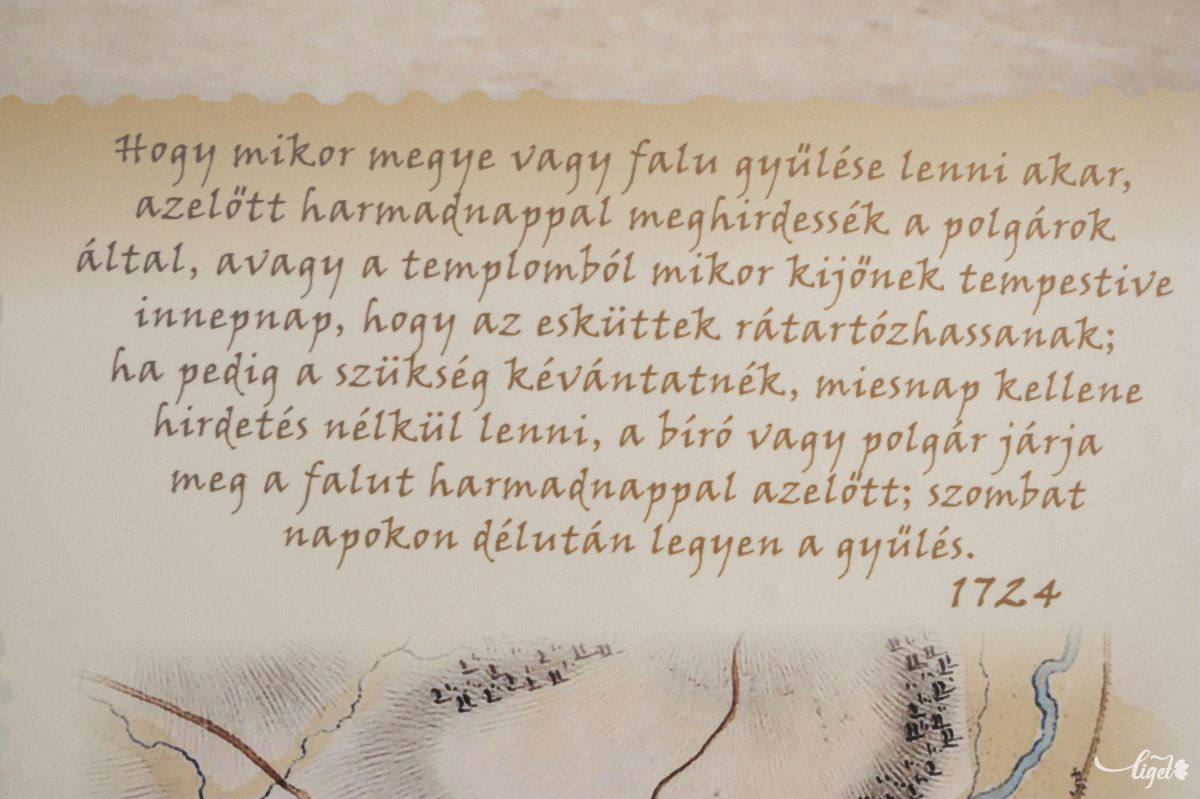 Hogy mikor megye vagy falu gyűlése lenni akar,
azelőtt harmadnappal meghirdessék a polgárok
által, avagy a templomból mikor kijőnek tempestive
innepnap, hogy az esküttek rátartózhassanak;
ha pedig a szükség kévántatnék, miesnap kellene
hirdetés nélkül lenni, a bíró vagy polgár járja
meg a falut harmadnappal azelőtt; szombat
napokon délután legyen a gyűlés.
1724
liget